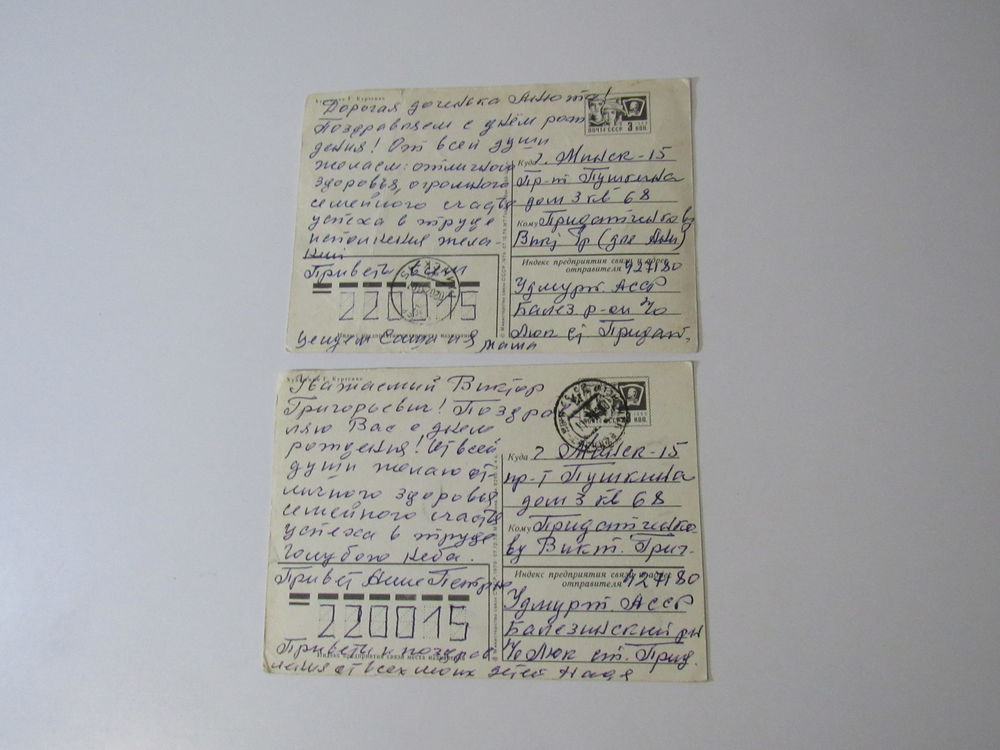 Дорогая доченька Анюта!
Поздравляем с днём рож
дения! От всей души
желаем: отличного
здоровья, огромного
семейного счастья
успеха в труде
исполнения жела
ний
Привет всем
220015
целуем Саша и я мама
ПОЧТА СССР 3 КОП.
Куда г. Минск-15
Пр-т Пушкина
дом 3 кв 68
Кому Придатченко
Викт Гр (для Ани)
Индекс предприятия связи и адрес
отправителя 427180
Удмурт АССР
Балез р-он
Люк ст Придат.
Уважаемый Виктор
Григорьевич! Поздрав
ляю Вас с днем
рождения! От всей
души желаю от
личного здоровья
семейного счастья
успеха в труде
голубого неба.
Привет Анне Петровне
220015
Приветы и поздрав
ления от всех моих детей Надя
Куда г Минск-15
пр-т Пушкина
дом 3 кв 68
Кому Придатченко
ву Викт. Григ.
Индекс предприятия связи и адрес
отправителя 427180
Удмурт. АССР
Балезинский рн
Люк ст. Прид.